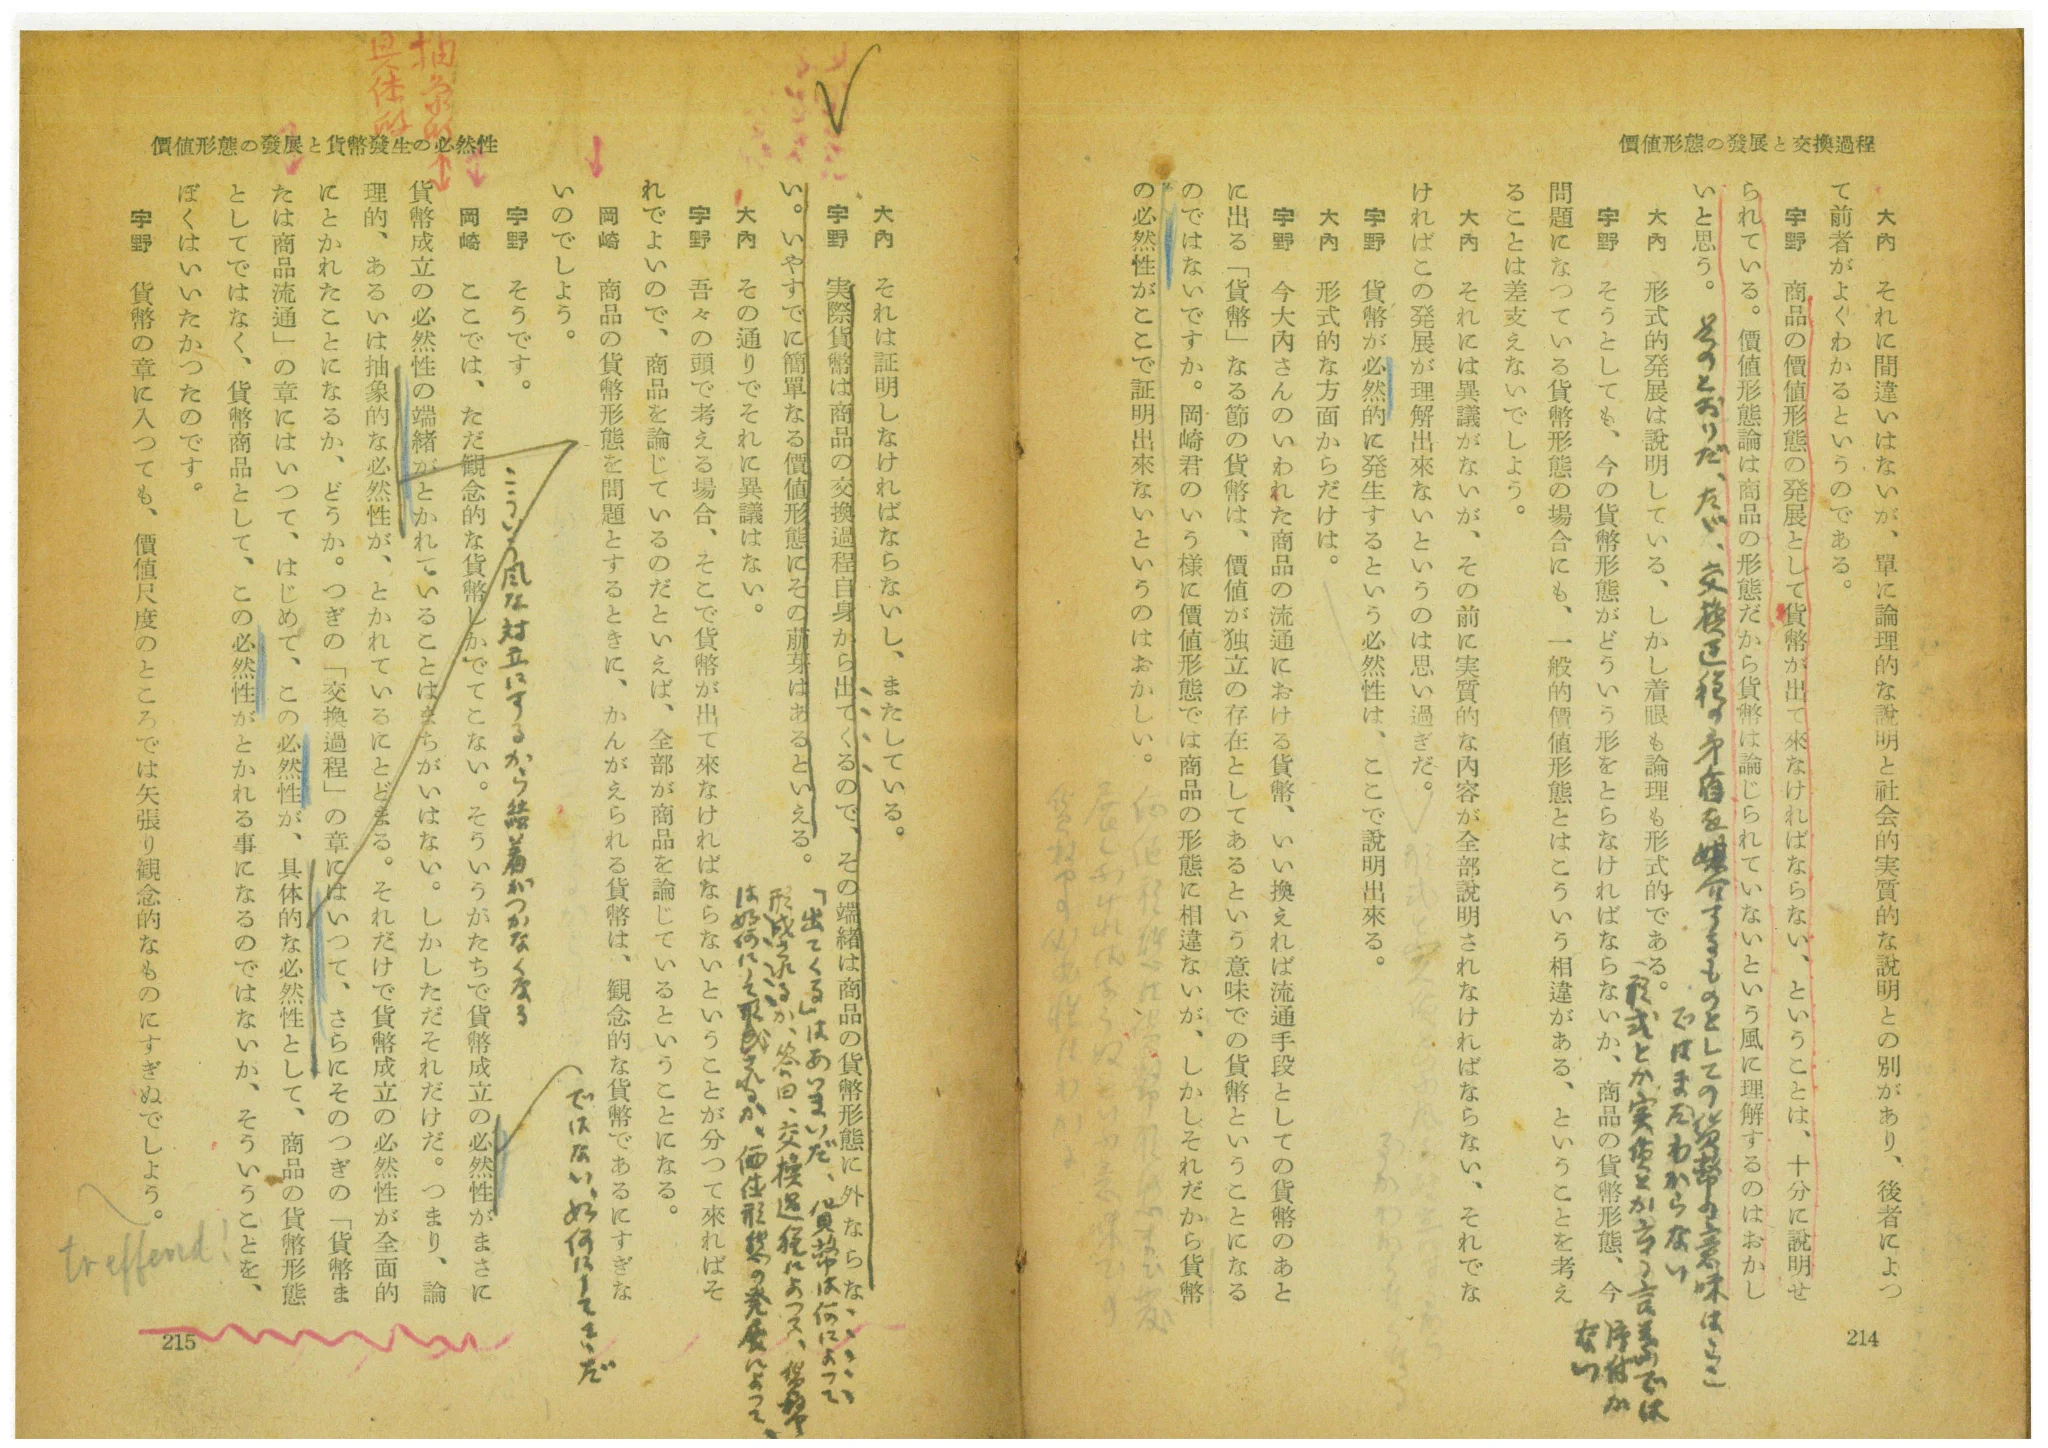 價値形態の發展と交換過程
大內　それに間違いはないが、單に論理的な說明と社会的実質的な說明との別があり、後者によつ
て前者がよくわかるというのである。
宇野　商品の價値形態の発展として貨幣が出て來なければならない、ということは、十分に說明せ
られている。價値形態論は商品の形態だから貨幣は論じられていないという風に理解するのはおかし
いと思う。
そのとおりだ、ただ、交換過程の矛盾を媒介するものとしての貨幣の意味は
ではまだわからない
大內　形式的発展は說明している、しかし着眼も論理も形式的である。
形式とか実質とか言う言葉では
片付か
ない
宇野　そうとしても、今の貨幣形態がどういう形をとらなければならないか、商品の貨幣形態、今
問題になつている貨幣形態の場合にも、一般的價値形態とはこういう相違がある、ということを考え
ることは差支えないでしよう。
大內　それには異議がないが、その前に実質的な內容が全部說明されなければならない、それでな
ければこの発展が理解出來ないというのは思い過ぎだ。
宇野　貨幣が必然的に発生するという必然性は、ここで說明出來る。
大內　形式的な方面からだけは。
宇野　今大內さんのいわれた商品の流通における貨幣、いい換えれば流通手段としての貨幣のあと
に出る「貨幣」なる節の貨幣は、價値が独立の存在としてあるという意味での貨幣ということになる
のではないですか。岡崎君のいう様に價値形態では商品の形態に相違ないが、しかしそれだから貨幣
の必然性がここで証明出來ないというのはおかしい。
214
抽象的
具体的
價値形態の發展と貨幣發生の必然性
大內　それは証明しなければならないし、またしている。
宇野　実際貨幣は商品の交換過程自身から出てくるので、その端緒は商品の貨幣形態に外ならな
い。いやすでに簡單なる價値形態にその萠芽はあるといえる。
「出てくる」はあいまいだ、貨幣は何によって
形成されるか、答曰、交換過程によって、貨幣
は如何にして形成されるか、価値形態の発展によって、
大內　その通りでそれに異議はない。
宇野　吾々の頭で考える場合、そこで貨幣が出て來なければならないということが分つて來ればそ
れでよいので、商品を論じているのだといえば、全部が商品を論じているということになる。
岡崎　商品の貨幣形態を問題とするときに、かんがえられる貨幣は、観念的な貨幣であるにすぎな
いのでしよう。
ではない、如何にしてきくだ
宇野　そうです。
こういう風な対立にするから結着がつかなくなる
岡崎　ここでは、ただ観念的な貨幣しかでてこない。そういうかたちで貨幣成立の必然性がまさに
貨幣成立の必然性の端緒がとかれていることはまちがいはない。しかしただそれだけだ。つまり、論
理的、あるいは抽象的な必然性が、とかれているにとどまる。それだけで貨幣成立の必然性が全面的
にとかれたことになるか、どうか。つぎの「交換過程」の章にはいつて、さらにそのつぎの「貨幣ま
たは商品流通」の章にはいつて、はじめて、この必然性が、具体的な必然性として、商品の貨幣形態
としてではなく、貨幣商品として、この必然性がとかれる事になるのではないか、そういうことを、
ぼくはいいたかつたのです。
宇野　貨幣の章に入つても、價値尺度のところでは矢張り観念的なものにすぎぬでしよう。
treffend!
215